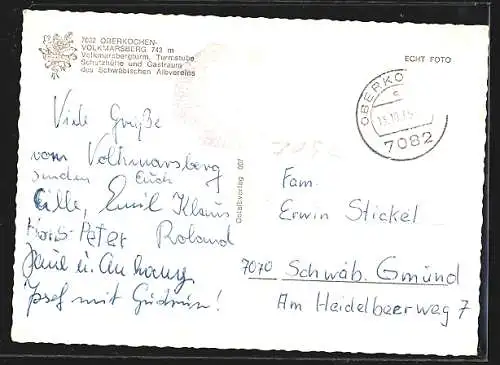 7082 OBERKOCHEN-
VOLKMARSBERG 743 m
Volkmarsbergturm, Turmstube
Schutzhütte und Gastraum
des Schwäbischen Albvereins
ECHT FOTO
OBERKO
c
7082
Viele Grüße
vom Volkmarsberg
senden Euch
Cille, Emil Klaus
Hans-Peter Roland
u. Anhang
Josef mit Gudrun!
Fam.
Erwin Stickel
7070 Schwäb. Gmünd
Am Heidelbeerweg 7